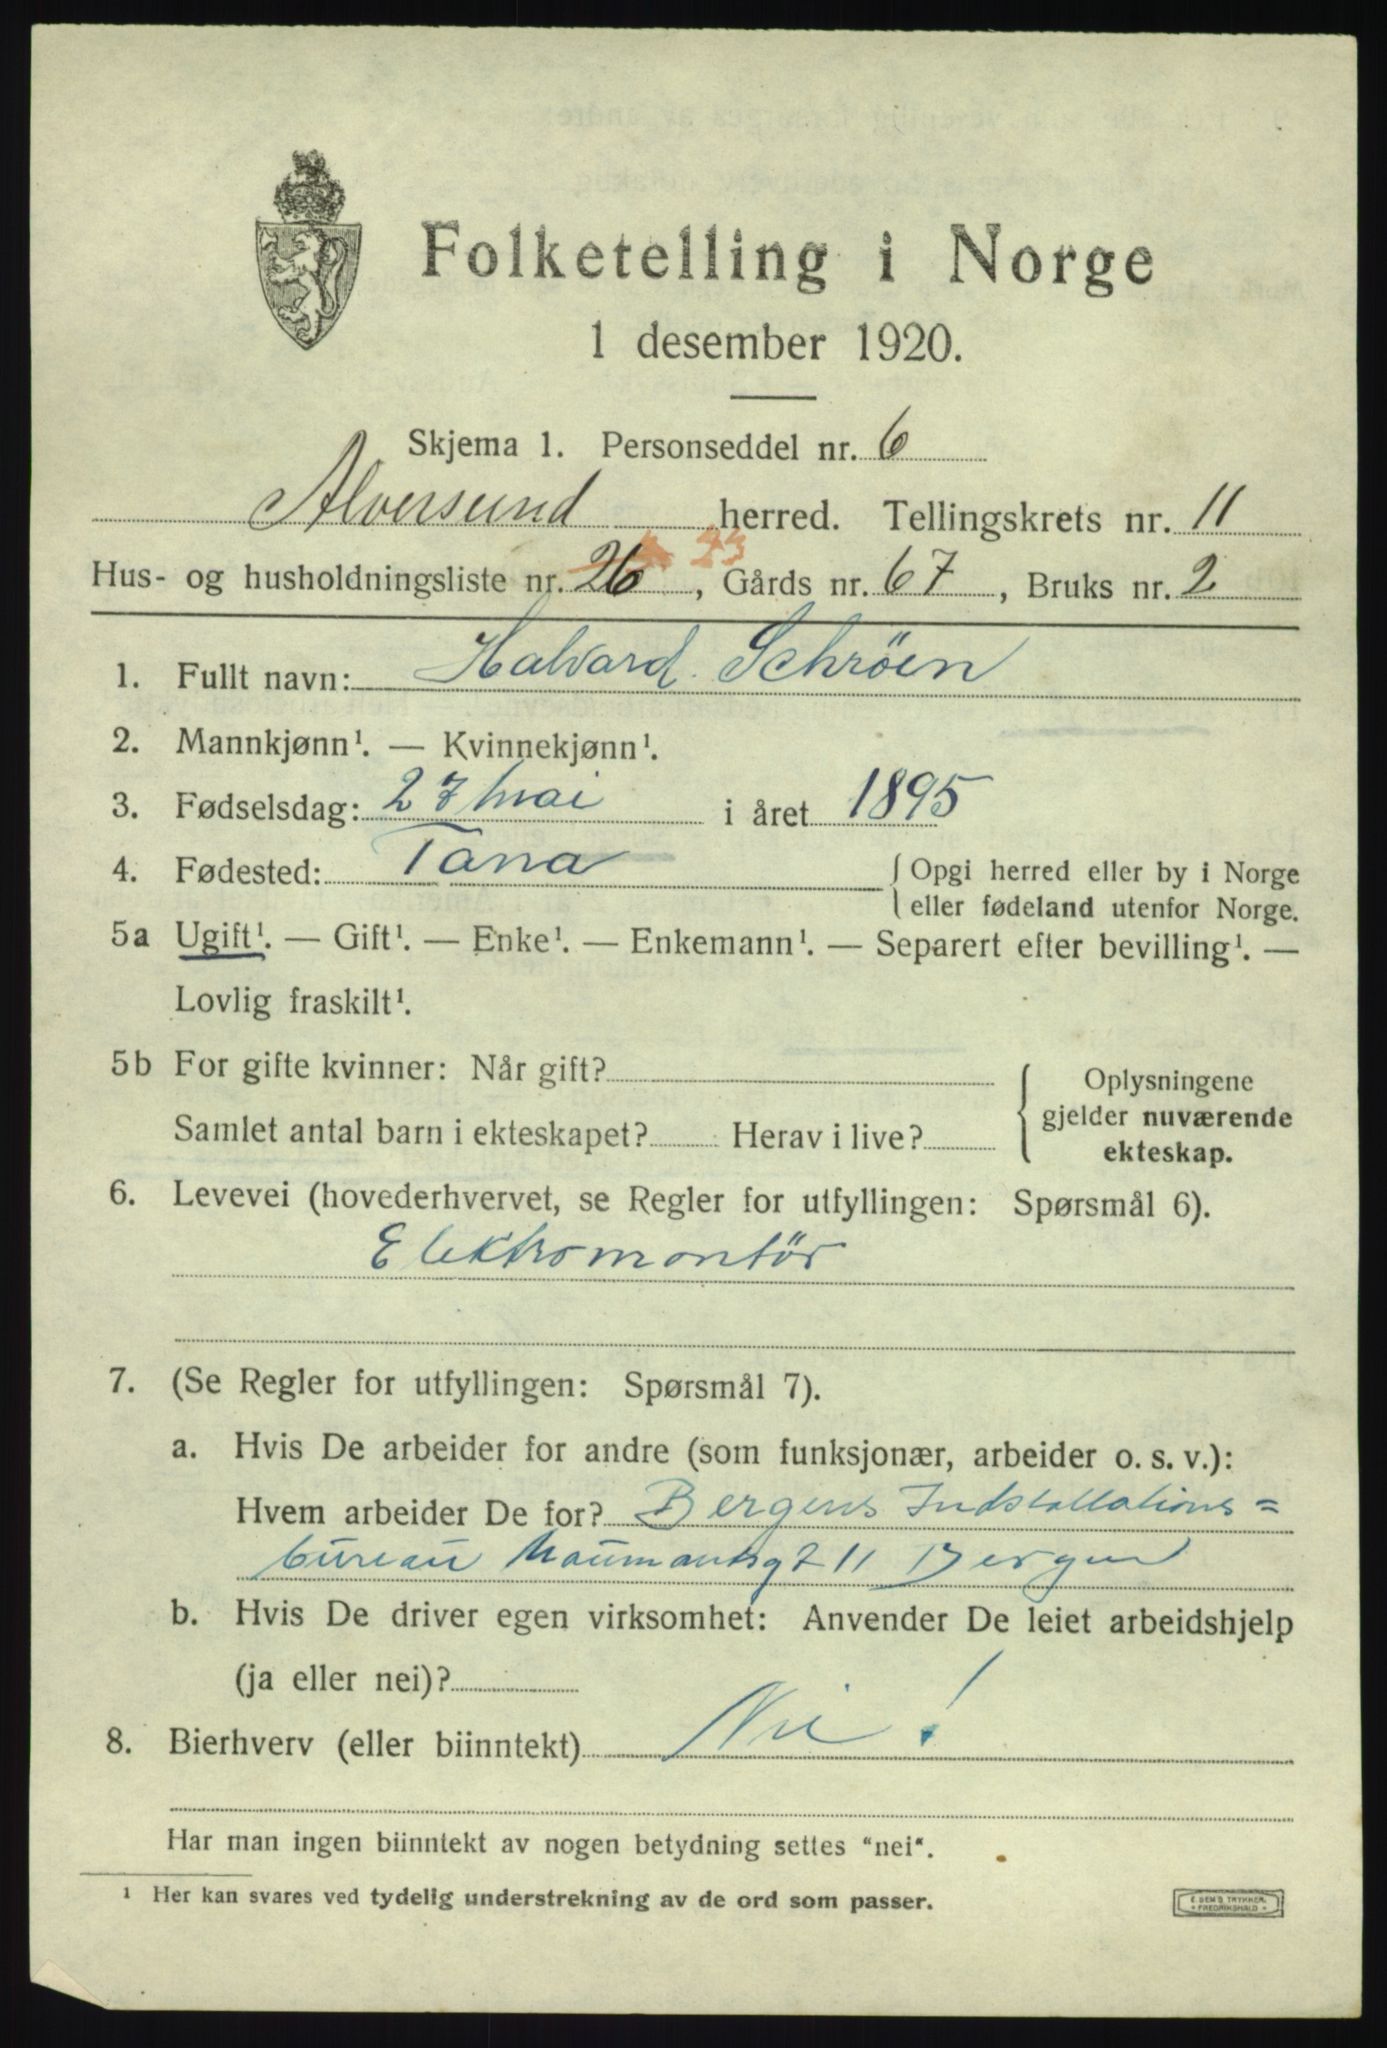 Folketelling i Norge
1 desember 1920.
Skjema 1. Personseddel nr. 6
Alversund herred. Tellingskrets nr. 11
33
Hus- og husholdningsliste nr. 26, Gårds nr. 67, Bruks nr. 2
1. Fullt navn: Halvard Schröen
2. Mannkjønn¹. — Kvinnekjønn¹.
3. Fødselsdag: 27 mai i året 1895
4. Fødested: Tana { Opgi herred eller by i Norge
eller fødeland utenfor Norge.
5a Ugift¹. — Gift¹. — Enke¹. — Enkemann¹. — Separert efter bevilling¹. —
Lovlig fraskilt¹.
5b For gifte kvinner: Når gift?
Samlet antal barn i ekteskapet? Herav i live?
{ Oplysningene
gjelder nuværende
ekteskap.
6. Levevei (hovederhvervet, se Regler for utfyllingen: Spørsmål 6).
Elektromontör
7. (Se Regler for utfyllingen: Spørsmål 7).
a. Hvis De arbeider for andre (som funksjonær, arbeider o. s. v.):
Hvem arbeider De for? Bergens Indstallations=
bureau 11 Bergen
b. Hvis De driver egen virksomhet: Anvender De leiet arbeidshjelp
(ja eller nei)?
8. Bierhverv (eller biinntekt) Nei!
Har man ingen biinntekt av nogen betydning settes "nei".
¹ Her kan svares ved tydelig understrekning av de ord som passer.
E. SEM'S TRYKKERI
FREDRIKSHALD